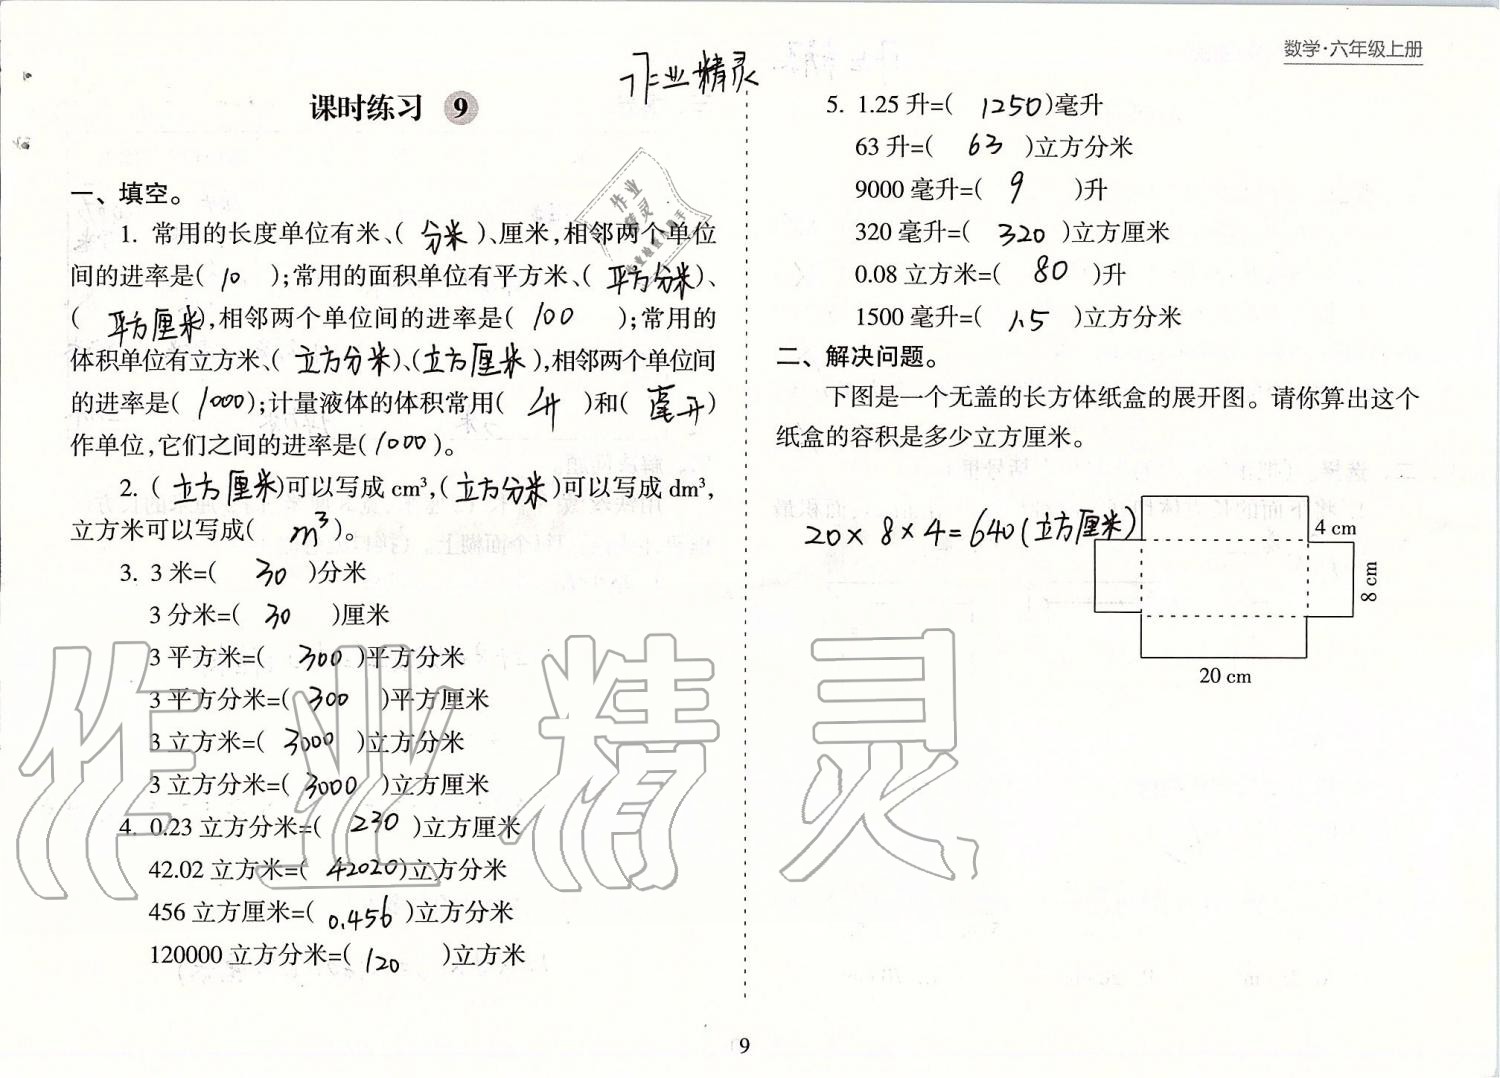 数学·六年级上册
作业精灵
课时练习 9
一、填空。
1. 常用的长度单位有米、( 分米 )、厘米,相邻两个单位
间的进率是( 10 );常用的面积单位有平方米、( 平方分米 )、
( 平方厘米 ),相邻两个单位间的进率是( 100 );常用的
体积单位有立方米、( 立方分米 )、( 立方厘米 ),相邻两个单位间
的进率是( 1000 );计量液体的体积常用( 升 )和( 毫升 )
作单位,它们之间的进率是( 1000 )。
2. ( 立方厘米 )可以写成 cm³,( 立方分米 )可以写成 dm³,
立方米可以写成( m³ )。
3. 3 米=( 30 )分米
3 分米=( 30 )厘米
3 平方米=( 300 )平方分米
3 平方分米=( 300 )平方厘米
3 立方米=( 3000 )立方分米
3 立方分米=( 3000 )立方厘米
4. 0.23 立方分米=( 230 )立方厘米
42.02 立方米=( 42020 )立方分米
456 立方厘米=( 0.456 )立方分米
120000 立方分米=( 120 )立方米
5. 1.25 升=( 1250 )毫升
63 升=( 63 )立方分米
9000 毫升=( 9 )升
320 毫升=( 320 )立方厘米
0.08 立方米=( 80 )升
1500 毫升=( 1.5 )立方分米
二、解决问题。
下图是一个无盖的长方体纸盒的展开图。请你算出这个
纸盒的容积是多少立方厘米。
20×8×4=640(立方厘米)
4 cm
8 cm
20 cm
作业精灵
9